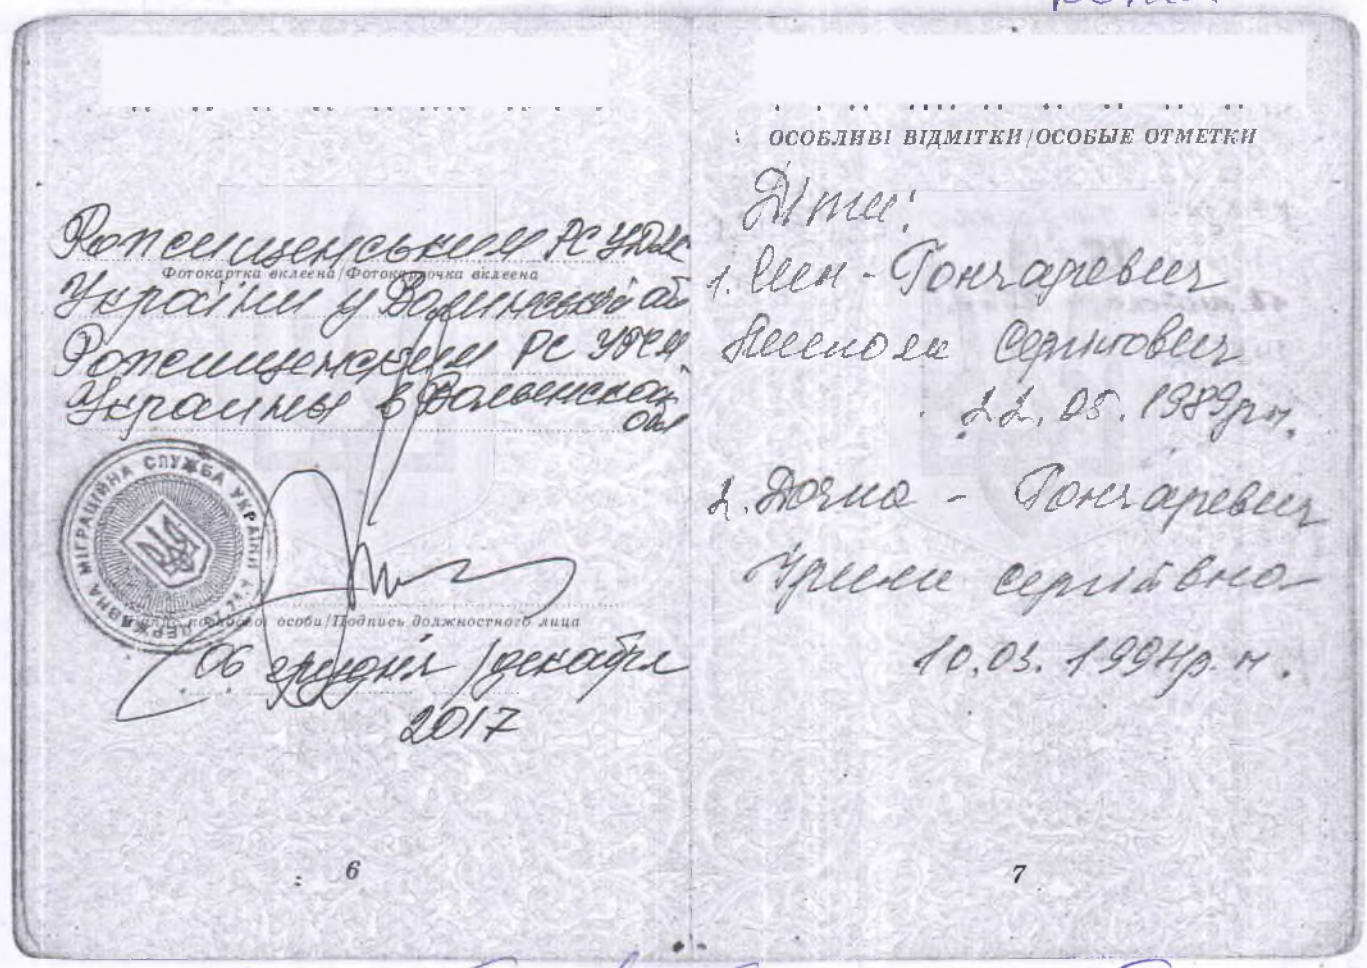 Рожищенський РС УДМС
Фотокартка вклеена/Фотокарточка вклеена
України у Волинській обл
Рожищенский РС УГМС
Украины в Волынской
обл
ДЕРЖАВНА МІГРАЦІЙНА СЛУЖБА УКРАЇНИ
особи/Подпись должностного лица
06 грудня /декабря
2017
6
ОСОБЛИВІ ВІДМІТКИ/ОСОБЫЕ ОТМЕТКИ
Діти:
1. Син - Гончаревич
Микола Сергійович
22.05.1989р.н.
2. Дочка - Гончаревич
Ірина Сергіївна
10.03.1994р.н.
7